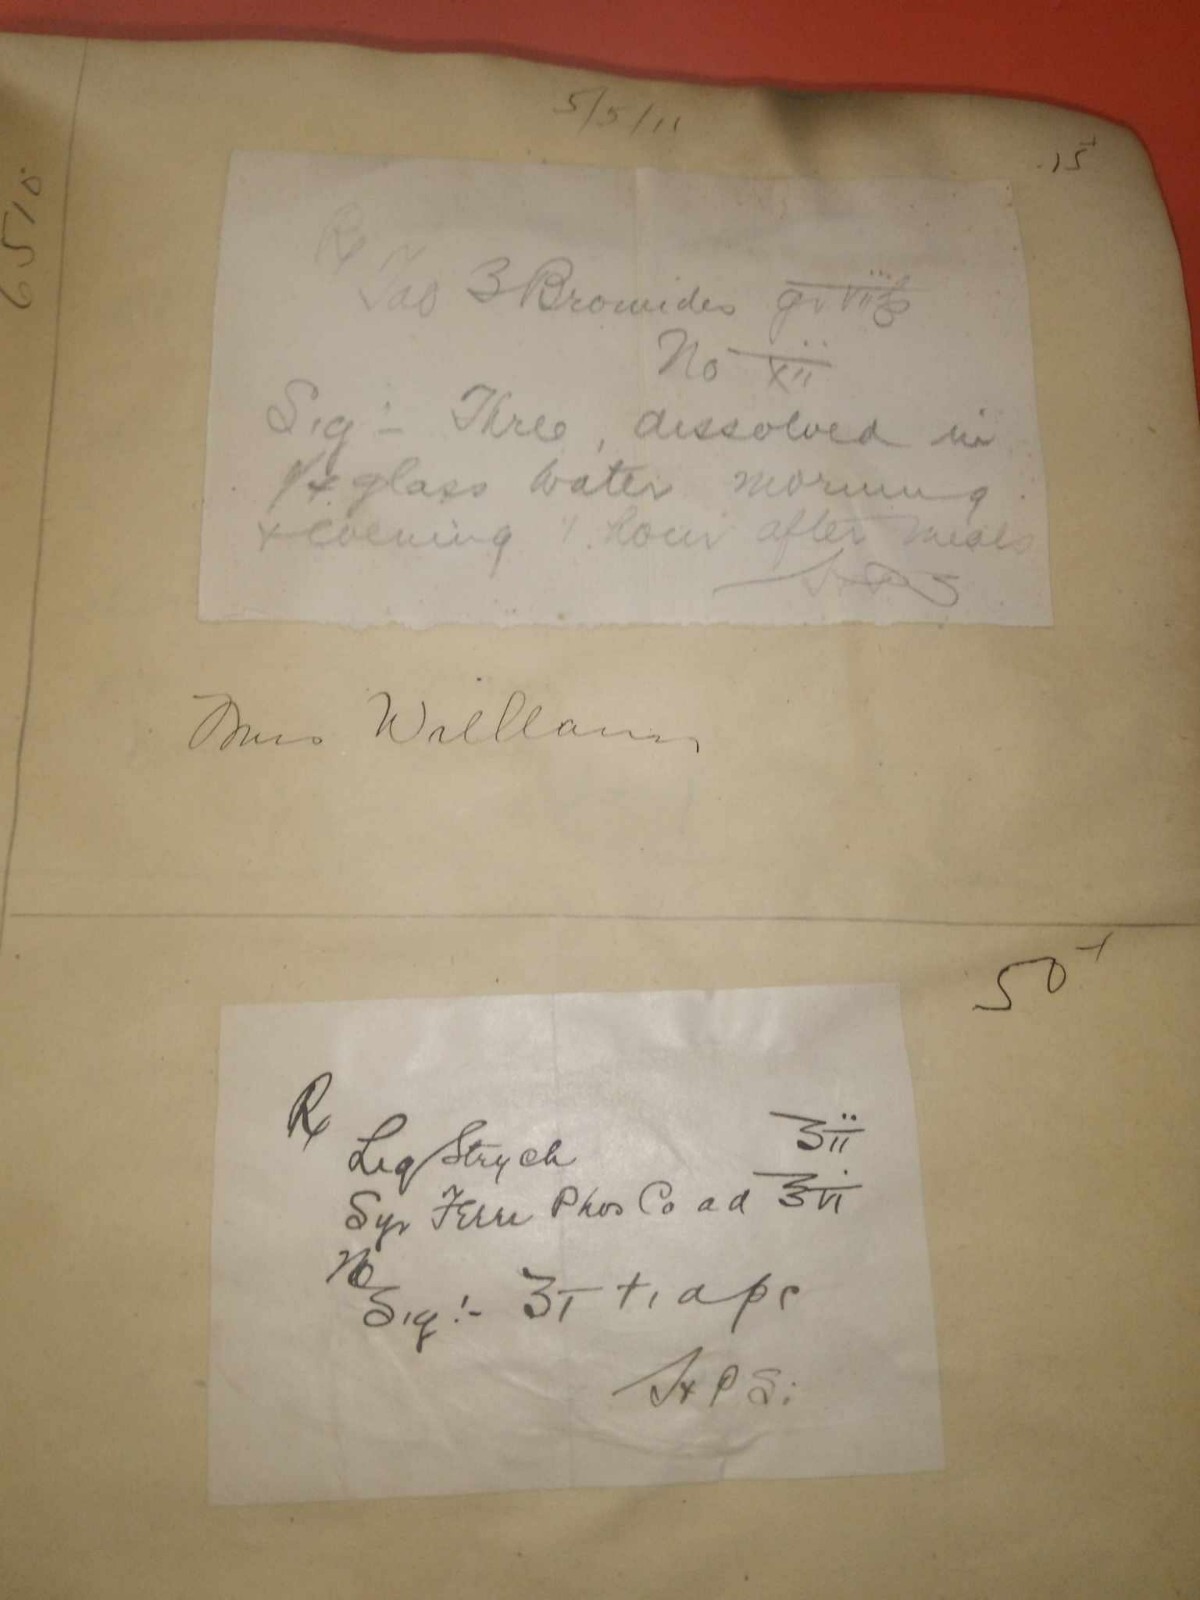 5/5/11
.15
6510
Rx
Tab 3 Bromides gr viiss
No xii
Sig:- Three, dissolved in
glass water morning
+ evening 1 hour after meals
Mrs Williams
50
Rx
Liq Strych ʒii
Syr Ferri Phos Co ad ℥vi
No
Sig:- ʒi t.i.d pc